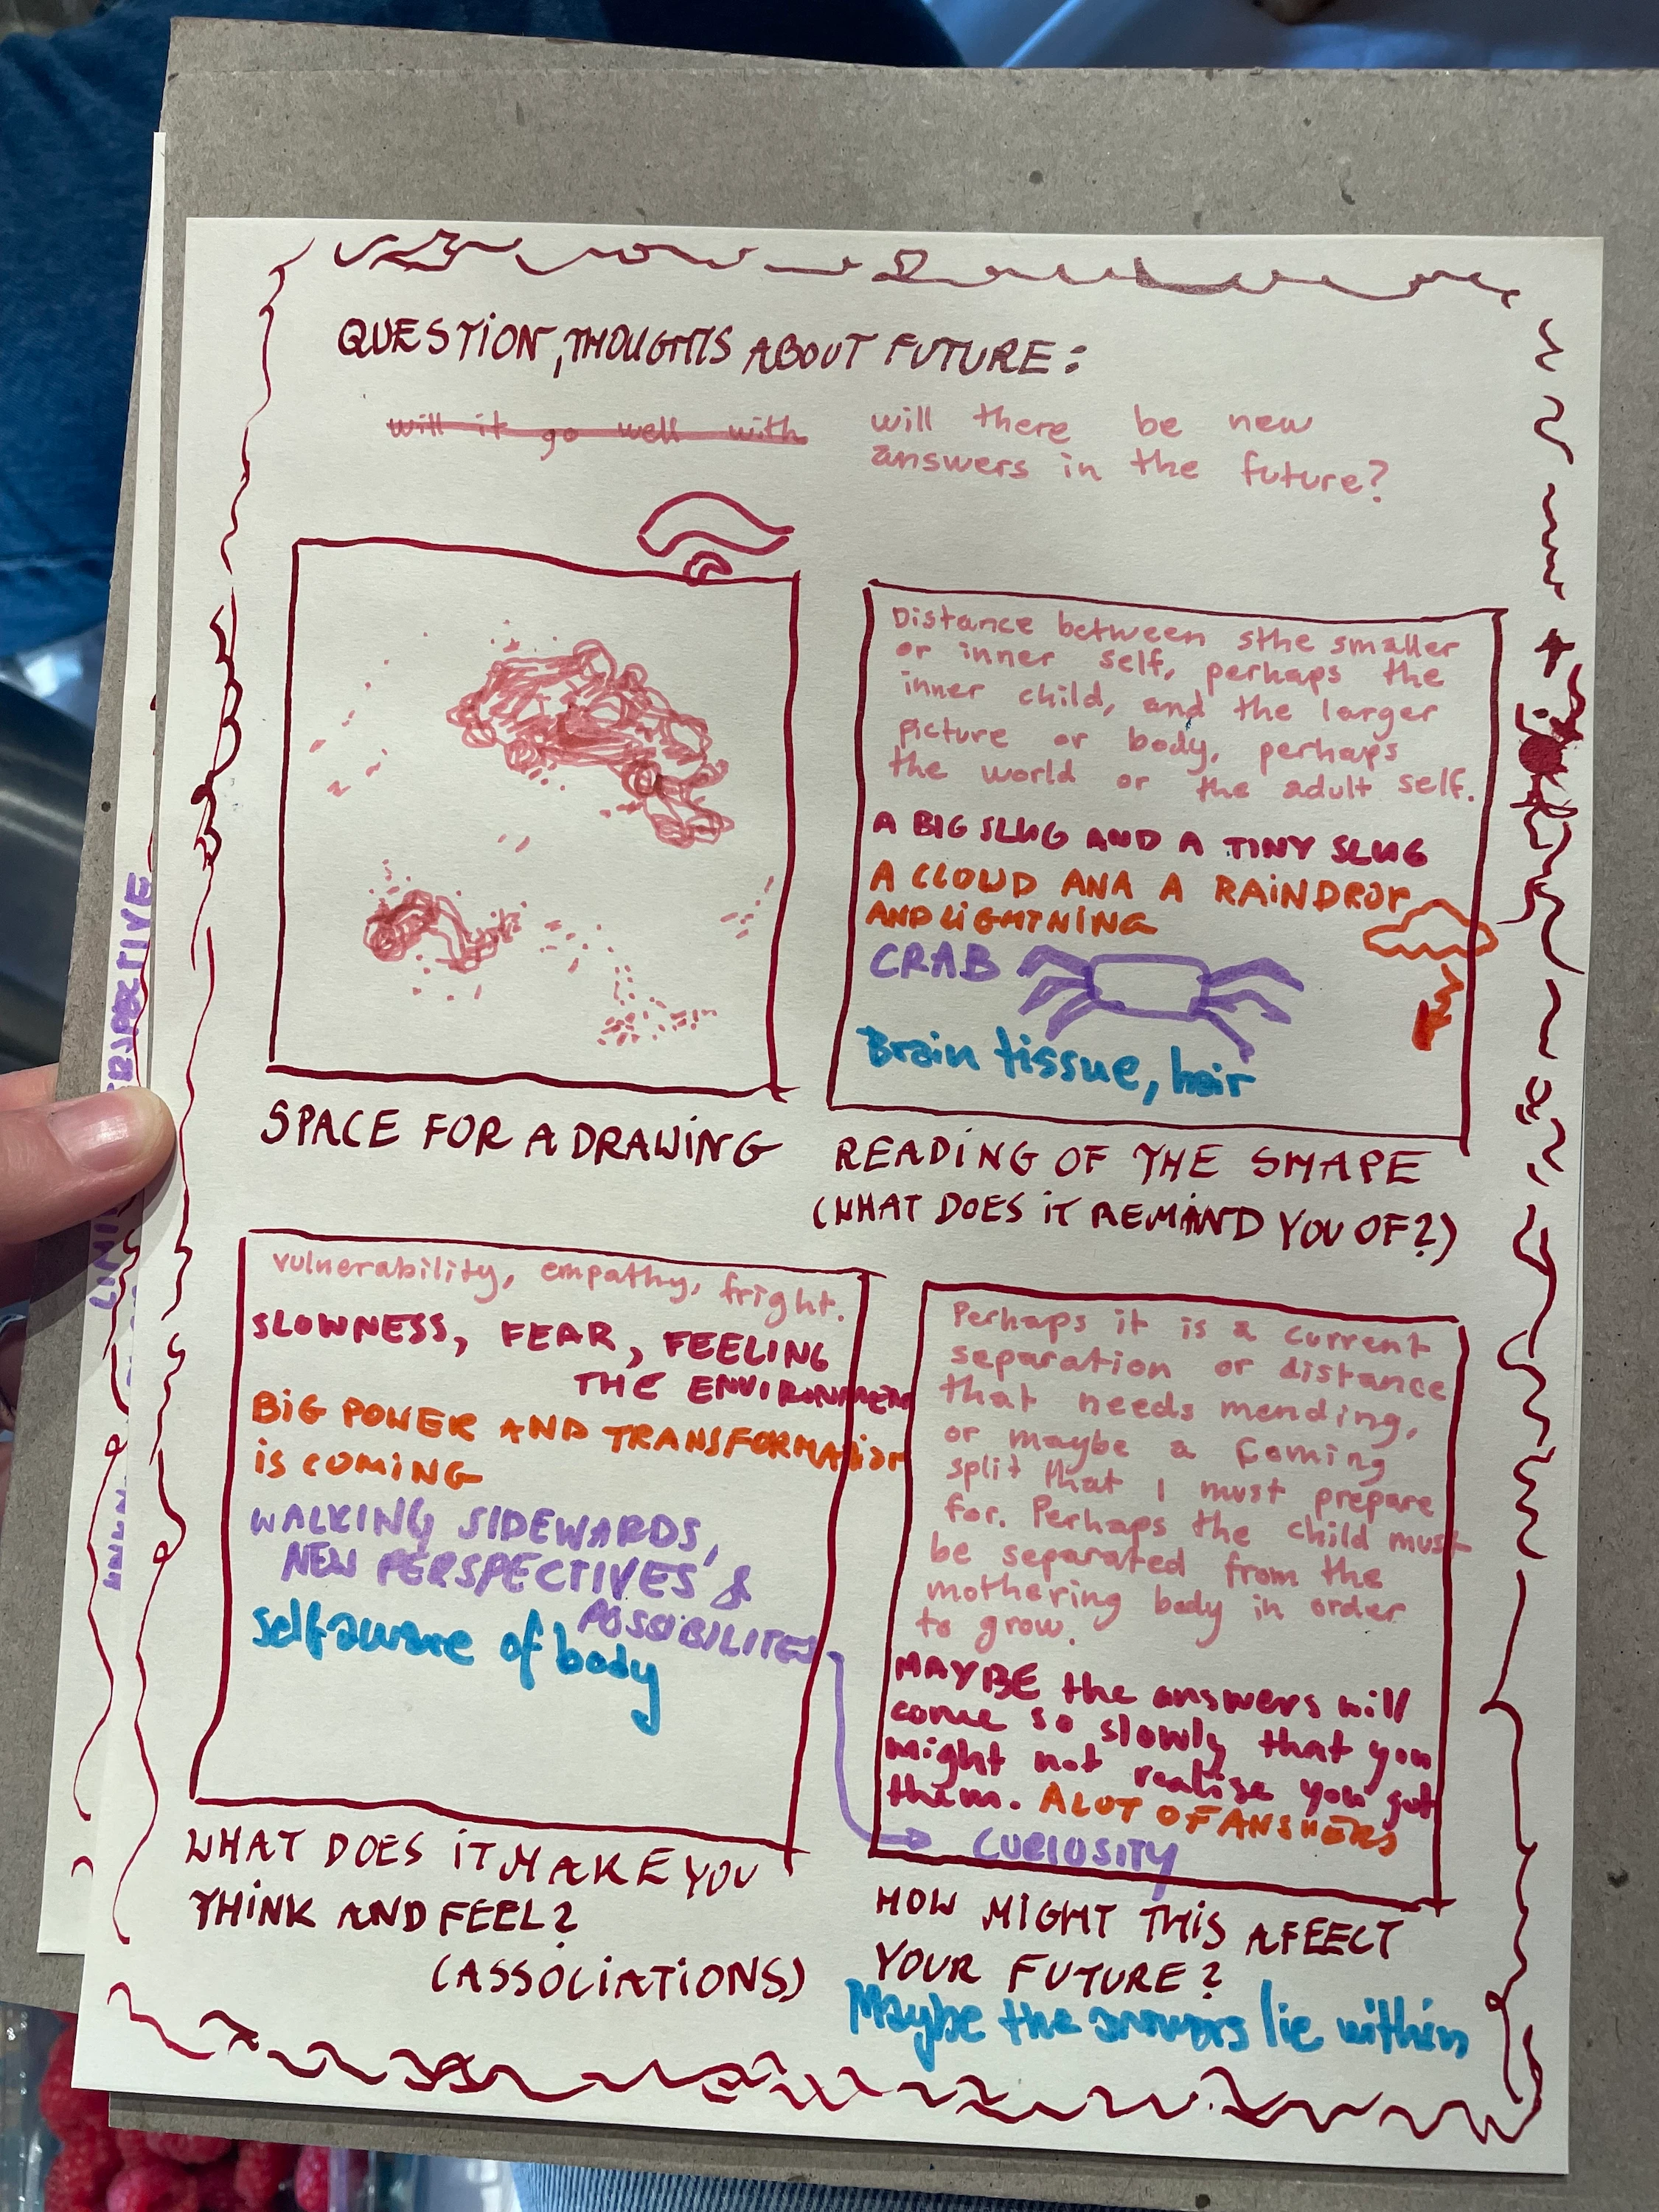 QUESTION, THOUGHTS ABOUT FUTURE:
will it go well with
will there be new
answers in the future?
Distance between sthe smaller
or inner self, perhaps the
inner child, and the larger
picture or body, perhaps
the world or the adult self.
A BIG SLUG AND A TINY SLUG
A CLOUD ANA A RAINDROP
AND LIGHTNING
CRAB
Brain tissue, hair
SPACE FOR A DRAWING
READING OF THE SHAPE
(WHAT DOES IT REMIND YOU OF?)
vulnerability, empathy, fright.
SLOWNESS, FEAR, FEELING
THE ENVIRONMENT
BIG POWER AND TRANSFORMATION
IS COMING
WALKING SIDEWARDS,
NEW PERSPECTIVES &
POSSIBILITES
self aware of body
WHAT DOES IT MAKE YOU
THINK AND FEEL?
(ASSOCIATIONS)
Perhaps it is a current
separation or distance
that needs mending,
or maybe a coming
split that I must prepare
for. Perhaps the child must
be separated from the
mothering body in order
to grow.
MAYBE the answers will
come so slowly that you
might not realise you got
them. A LOT OF ANSWERS
CURIOSITY
HOW MIGHT THIS AFEECT
YOUR FUTURE?
Maybe the answers lie within